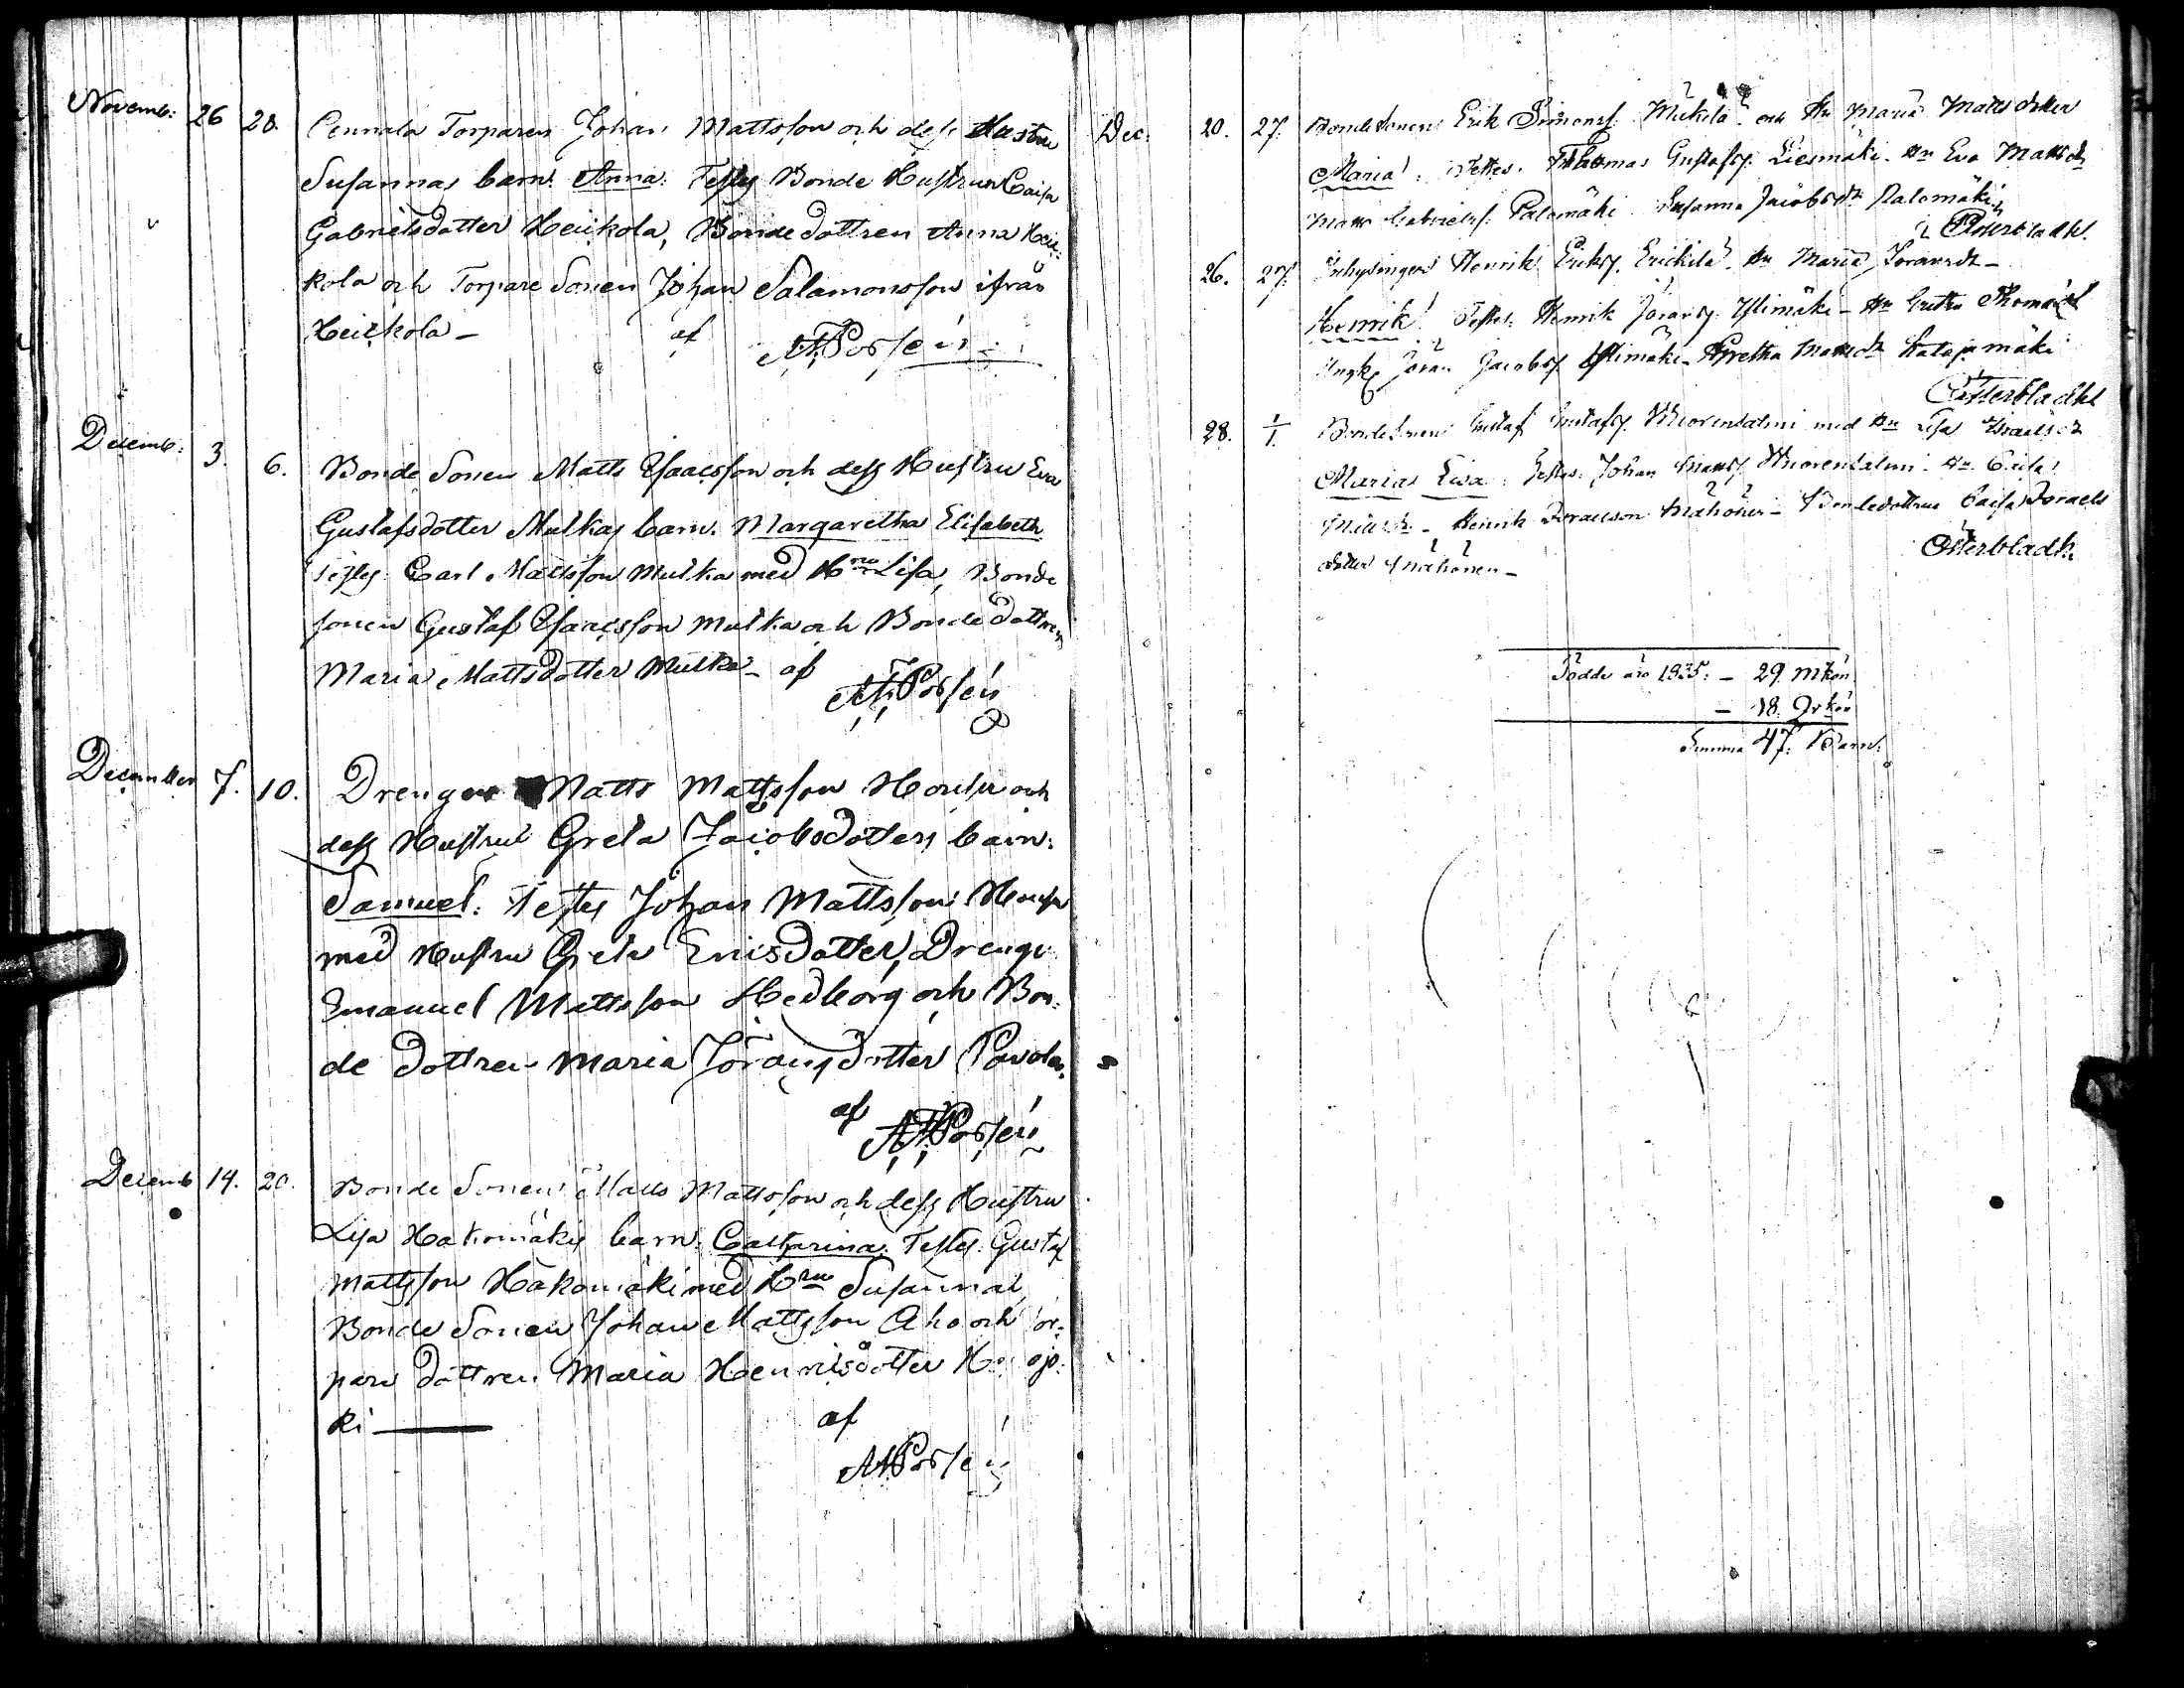 Novemb: 26 28. Pennala Torparen Johan Mattsson och dess Hustru
Susannas barn: Anna: Testes Bonde Hustrun Caisa
Gabrielsdotter Heickola, Bonde dottren Anna Heic=
kola och Torpare Sonen Johan Salamonsson ifrån
Heickola – af
Decemb: 3. 6. Bonde Sonen Matts Isaacsson och dess Hustru Eva
Gustafsdotter Mulkas barn. Margaretha Elisabeth
Testes: Carl Mattsson Mulka med Hru Lisa, Bonde
sonen Gustaf Isaacsson Mulka och Bonde dottren
Maria Mattsdotter Mulka – af
December 7. 10. Drengen Matts Mattsson och
dess Hustru Greta Jacobsdotters barn:
Samuel: Testes Johan Mattsson
med Hustru Greta Ericsdotter, Drengen
Emanuel Mattsson Hedborg och Bon=
de dottren Maria Göransdotter Pavola.
af
Decemb 14. 20. Bonde Sonen Matts Mattsson och dess Hustru
Lisa Hakomäkis barn: Catharina: Testes: Gustaf
Mattsson Hakomäki med Hru Susanna,
Bonde Sonen Johan Mattsson Aho och Tor=
pare dottren Maria Henricsdotter
ki — af
Dec: 20. 27. Bondesonen Erik Simonss. Mickilä och Hu Maria Matts dotter
Maria: Testes: Thomas Gustafss. Liesmäki. Hu Eva Mattsdr
Matts Gabrielss. Palomäki Susanna Jacobsdr Palomäki
Österbladh.
26. 27. Inhysingen Henrik Erikss. Erickilä. Hu Maria Göransdr –
Henrik: Testes: Henrik Görans. Ylimäki – Hu Greta Thomasdr
Göran Jacobss. Ylimäki – Gretha Mattsdr Katajamäki
Österbladh
28. 1/1 Bondesonen Gustaf Gustafss. med Hu Lisa Israelsdr
Maria Lisa: Testes: Johan Hu Caisa
Henrik Israelson – Bondedottren Caisa Israels
dotter
Österbladh.
Födde åro 1835: – 29. Mkön
– 18. Qvkön
Summa 47. Barn: